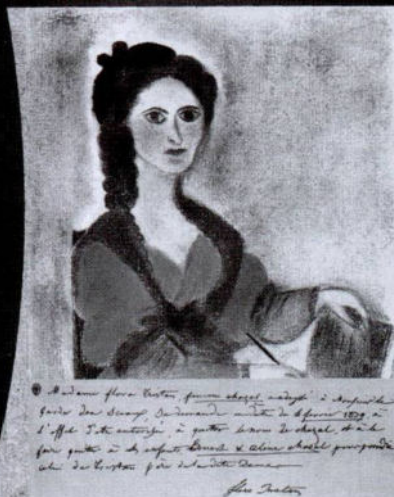 Madame flora Tristan, femme chazal, a adressé à Monsieur le
garde des Sceaux, Sa demande datée du 8 février 1839, à
l'effet d'être autorisée, à quitter le nom de chazal, et à le
faire quitter à ses enfants Ernest & Aline chazal pour prendre
celui de Tristan père de ladite Dame
flora Tristan